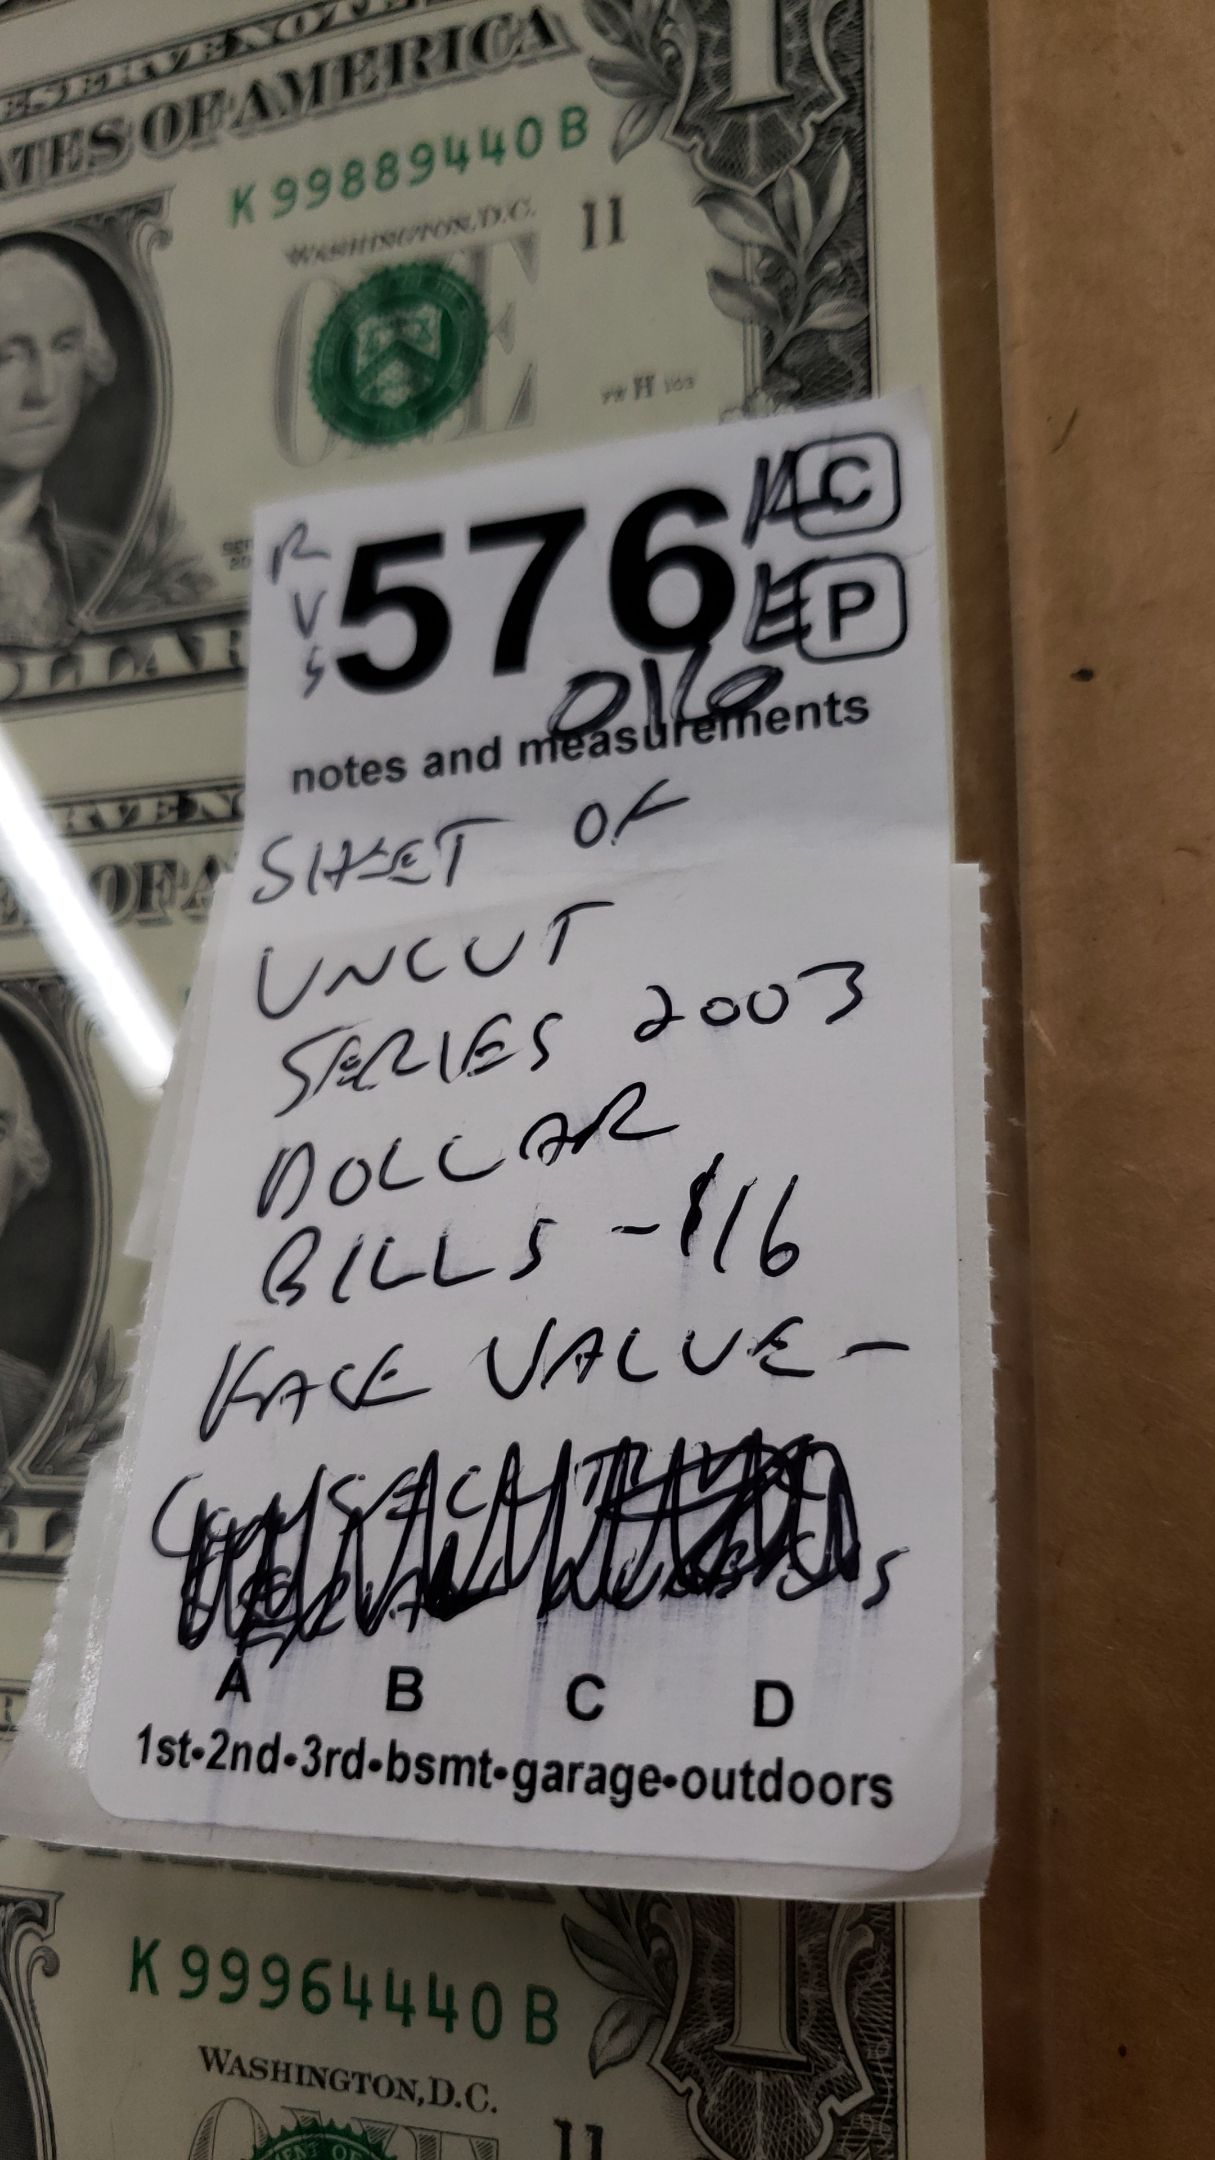 ESERVE NOTE
ATES OF AMERICA
1
K 99889440 B
WASHINGTON, D.C.
11
ONE
FW H 103
OLLAR
R
V
S
576
C
P
016
notes and measurements
SHEET OF
UNCUT
SERIES 2003
DOLLAR
BILLS - $16
FACE VALUE -
A B C D
1st•2nd•3rd•bsmt•garage•outdoors
K 99964440 B
WASHINGTON, D.C.
11